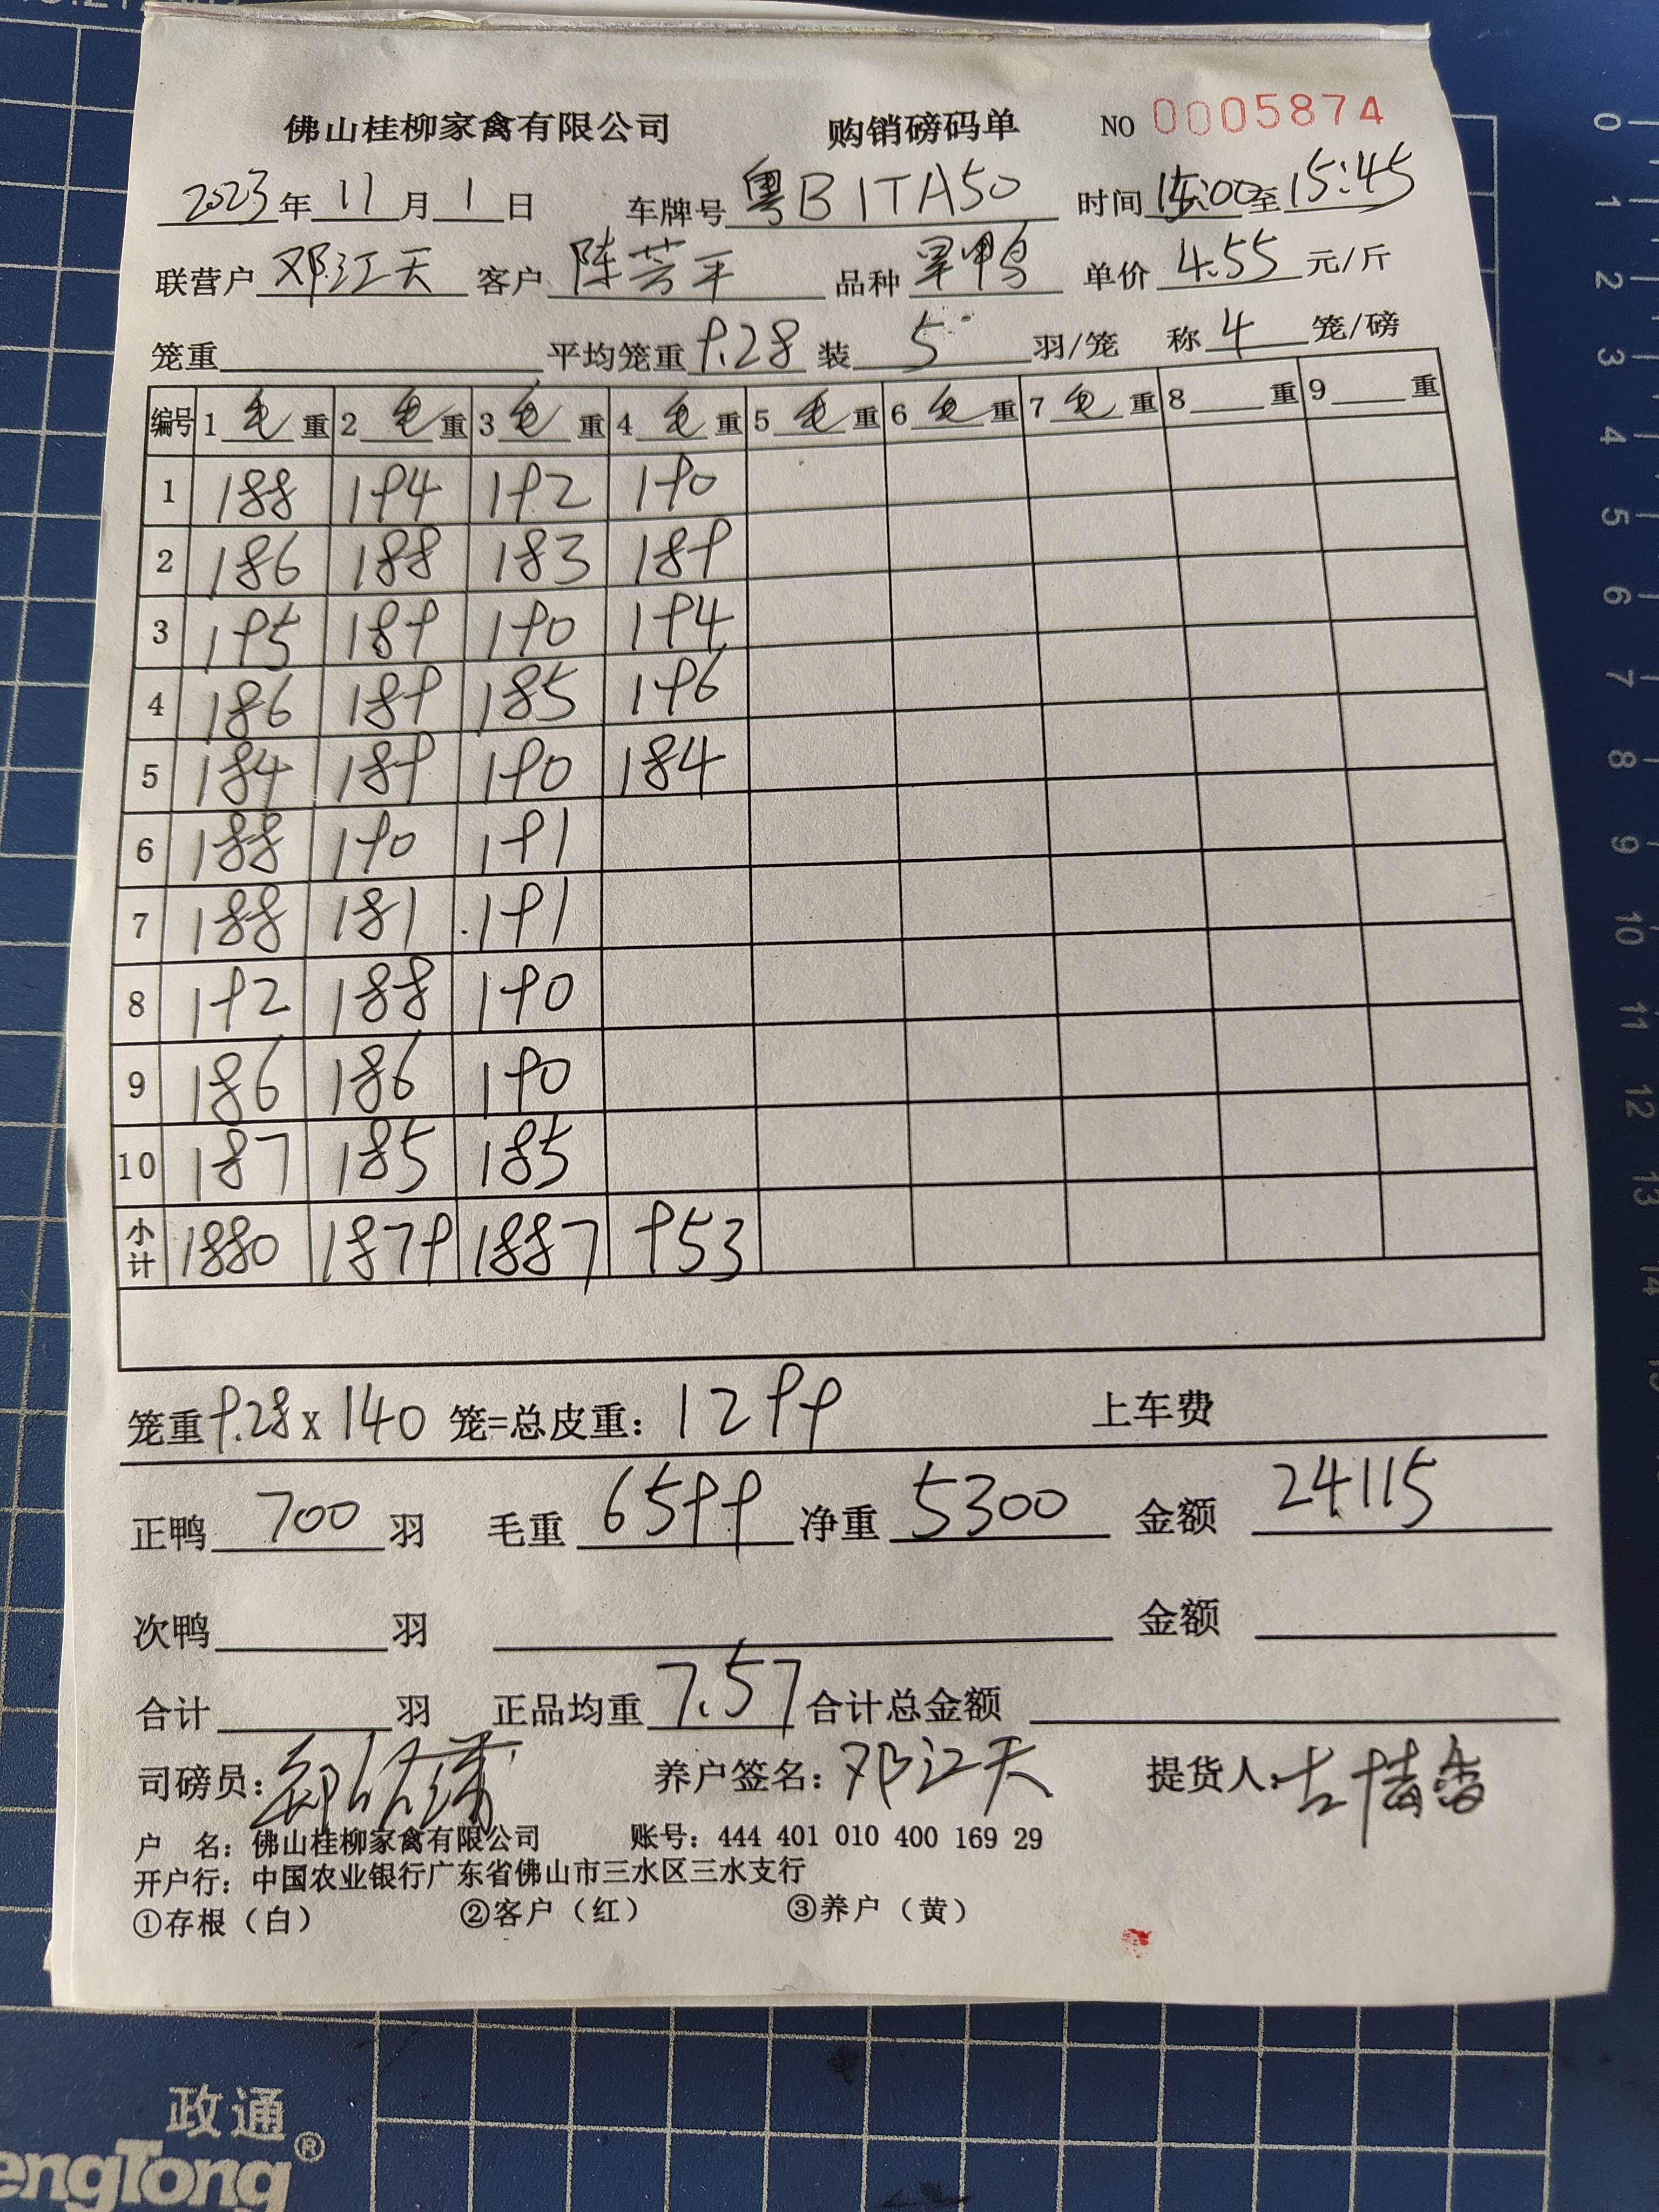 佛山桂柳家禽有限公司 购销磅码单 NO 0005874
2023年11月1日 车牌号 粤B1TA50 时间 15:00至15:45
联营户 邓江天 客户 陈芳平 品种 旱鸭 单价 4.55 元/斤
笼重 平均笼重 9.28 装 5 羽/笼 称 4 笼/磅
编号 1 毛 重 2 毛 重 3 毛 重 4 毛 重 5 毛 重 6 毛 重 7 毛 重 8 重 9 重
1 188 194 192 190
2 186 188 183 189
3 195 189 190 194
4 186 189 185 196
5 184 189 190 184
6 188 190 191
7 188 181 191
8 192 188 190
9 186 186 190
10 187 185 185
小计 1880 1879 1887 953
笼重 9.28 x 140 笼=总皮重: 1299 上车费
正鸭 700 羽 毛重 6599 净重 5300 金额 24115
次鸭 羽 金额
合计 羽 正品均重 7.57 合计总金额
司磅员: 养户签名: 邓江天 提货人:
户 名: 佛山桂柳家禽有限公司 账号: 444 401 010 400 169 29
开户行: 中国农业银行广东省佛山市三水区三水支行
①存根（白） ②客户（红） ③养户（黄）
0 1 2 3 4 5 6 7 8 9 10 11 12 13 14
政通
engTong®